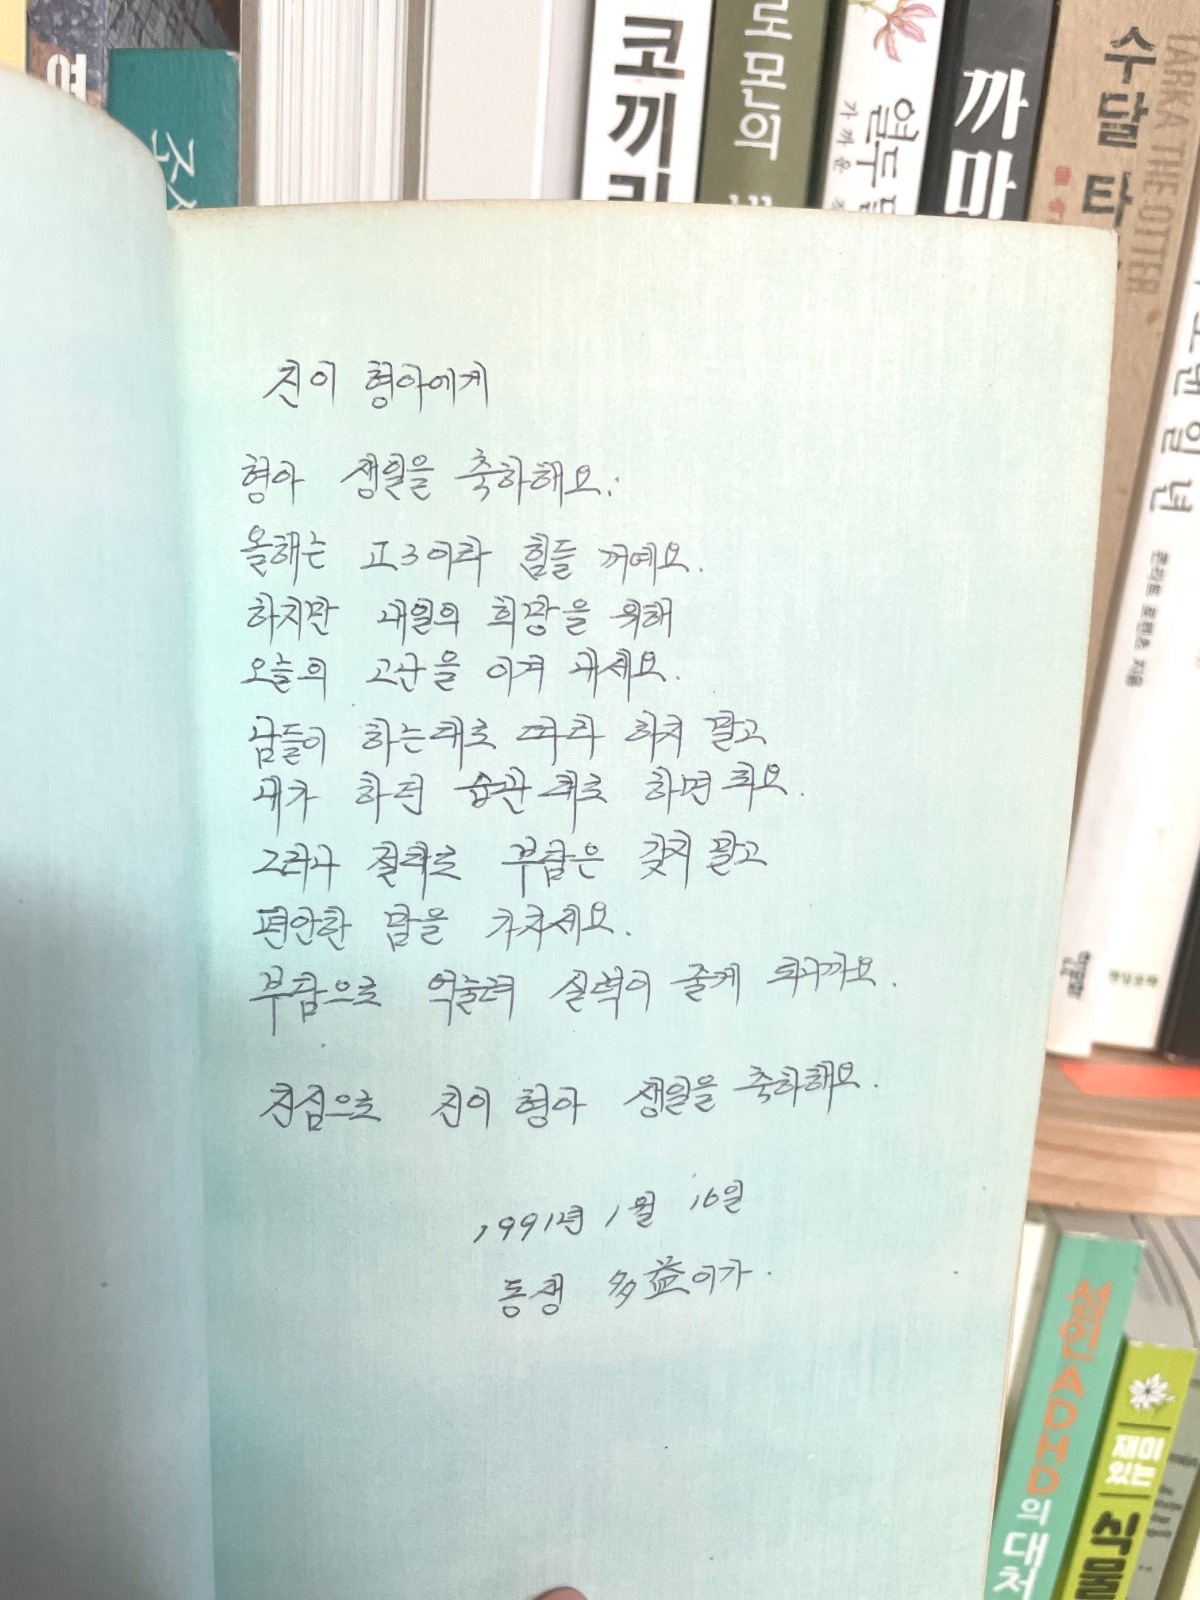 코끼리
로몬의
열두 달
가까운
까마
수달 타
TARKA THE OTTER
일 년
콘라트 로렌츠 지음
진이 형아에게
형아 생일을 축하해요.
올해는 고3이라 힘들 꺼예요.
하지만 내일의 희망을 위해
오늘의 고난을 이겨 내세요.
남들이 하는대로 따라 하지 말고
내가 하던 습관 대로 하면 되요.
그러나 절대로 부담은 갖지 말고
편안한 맘을 가지세요.
부담으로 억눌려 실력이 줄게 되니까요.
진심으로 진이 형아 생일을 축하해요.
1991년 1월 16일
동생 多益이가.
성인 ADHD의 대처
재미있는
식물